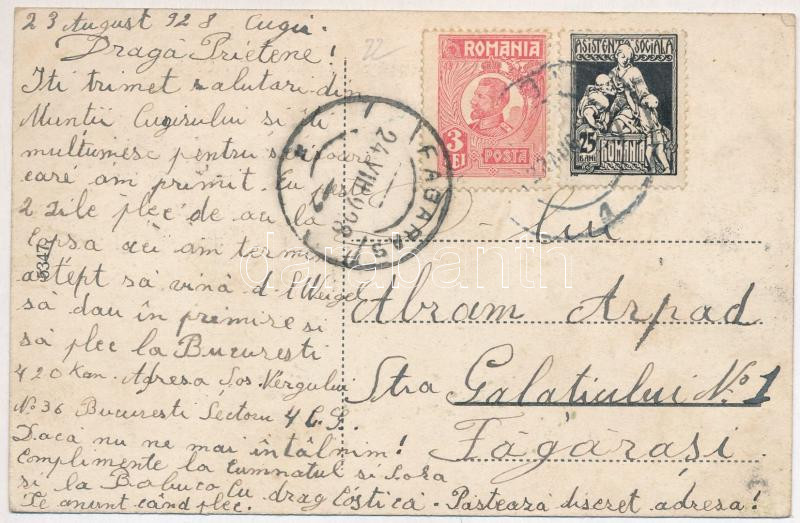 23 August 928 Cugir.
Dragă Prietene!
Iti trimet salutari din
Muntii Cugirului si iti
multumesc pentru scrisoare
care am primit. Eu peste
2 zile plec de au la
am termin
astept să vină d-l Weigel
sa dau în primire si
să plec la Bucuresti
420 Km. Adresa Șos. Vergului
No 36 Bucuresti Sectoru 4 C.G.
Dacă nu ne mai întâlnim!
Complimente la cumnatul si sora
si la Babuca Cu drag Costică - Păstează discret adresa!
Te anunt când plec.
5347
72
ROMANIA
3
LEI
POSTA
ASISTENTA SOCIALA
25
BANI
ROMANIA
FAGARAS
24.VIII.928
Lui
Abram Arpad
Stra Galatiului No 1
Făgărași
darabanth